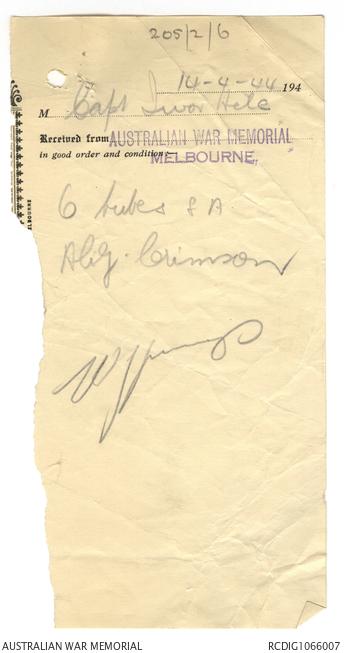 205/2/6
14-4-44 194
M Capt Ivor Hele
Received from AUSTRALIAN WAR MEMORIAL
in good order and condition:- MELBOURNE.
6 tubes S A
Aliz. Crimson
AUSTRALIAN WAR MEMORIAL RCDIG1066007